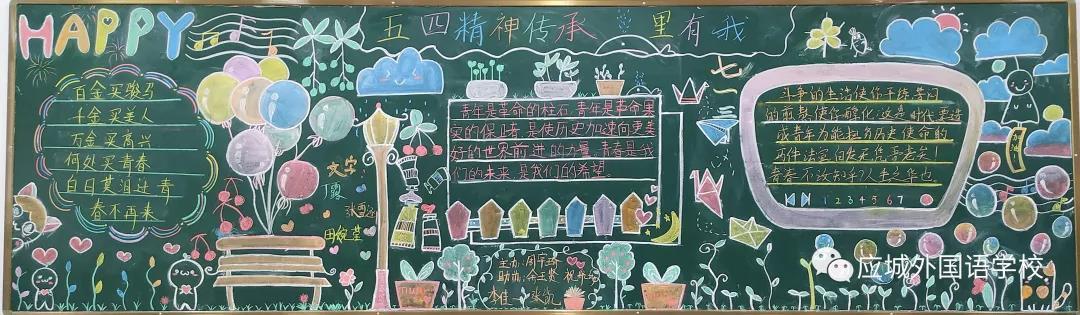 HAPPY
五四精神传承 里有我
百金买骏马
千金买美人
万金买高兴
何处买青春
白日莫消过 青
春不再来
文字
张雪
青年是革命的柱石.青年是革命果
实的保卫者.是使历史加速向更美
好的世界前进的力量.青春是我
们的未来.是我们的希望.
主办:周
助办:
七一
斗争的生活使你干练苦闷
的煎熬使你醇化;这是时代要造
成青年为能担负历史使命的
两件法宝 白发无凭吾老矣!
青春不
1 2 3 4 5 6 7
加油
应城外国语学校